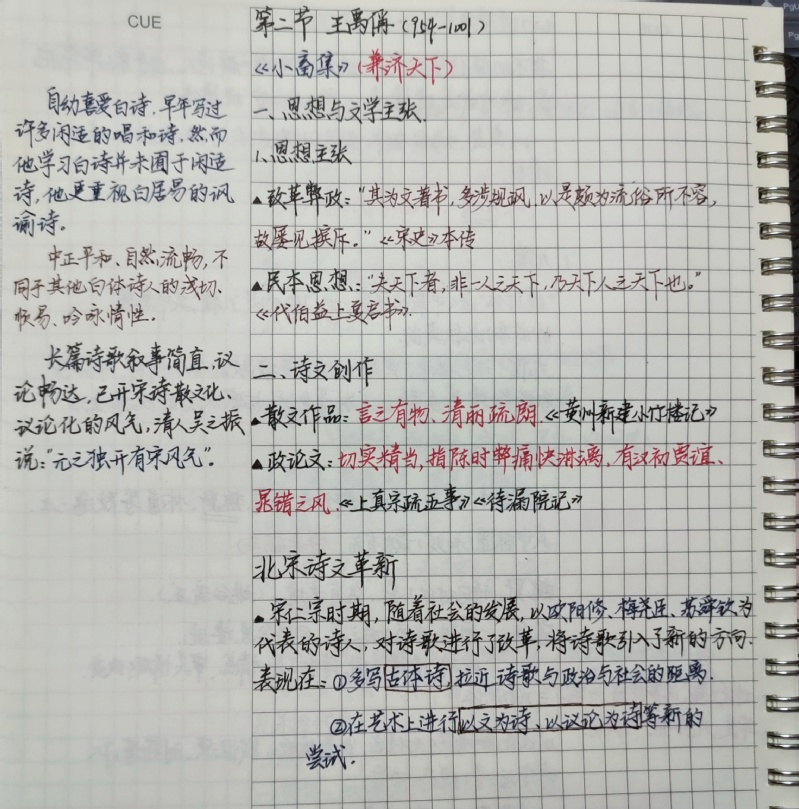 CUE
自幼喜爱白诗，早年写过
许多闲适的唱和诗，然而
他学习白诗并未囿于闲适
诗，他更重视白居易的讽
谕诗。
中正平和、自然流畅，不
同于其他白体诗人的浅切、
顺易、吟咏情性。
长篇诗歌叙事简直，议
论畅达，已开宋诗散文化、
议论化的风气，清人吴之振
说：“元之独开有宋风气”。
第二节 王禹偁（954-1001）
《小畜集》（兼济天下）
一、思想与文学主张．
1.思想主张
▲改革弊政：“其为文著书，多涉规讽，以是颇为流俗所不容，
故屡见摈斥。”《宋史》本传
▲民本思想：“夫天下者，非一人之天下，乃天下人之天下也。”
《代伯益上夏启书》．
二、诗文创作
▲散文作品：言之有物、清丽疏朗《黄州新建小竹楼记》
▲政论文：切实精当，指陈时弊痛快淋漓，有汉初贾谊、
晁错之风．《上真宗疏五事》《待漏院记》
北宋诗文革新
▲宋仁宗时期，随着社会的发展，以欧阳修、梅尧臣、苏舜钦为
代表的诗人，对诗歌进行了改革，将诗歌引入了新的方向．
表现在：①多写古体诗，拉近诗歌与政治与社会的距离．
②在艺术上进行以文为诗、以议论为诗等新的
尝试．